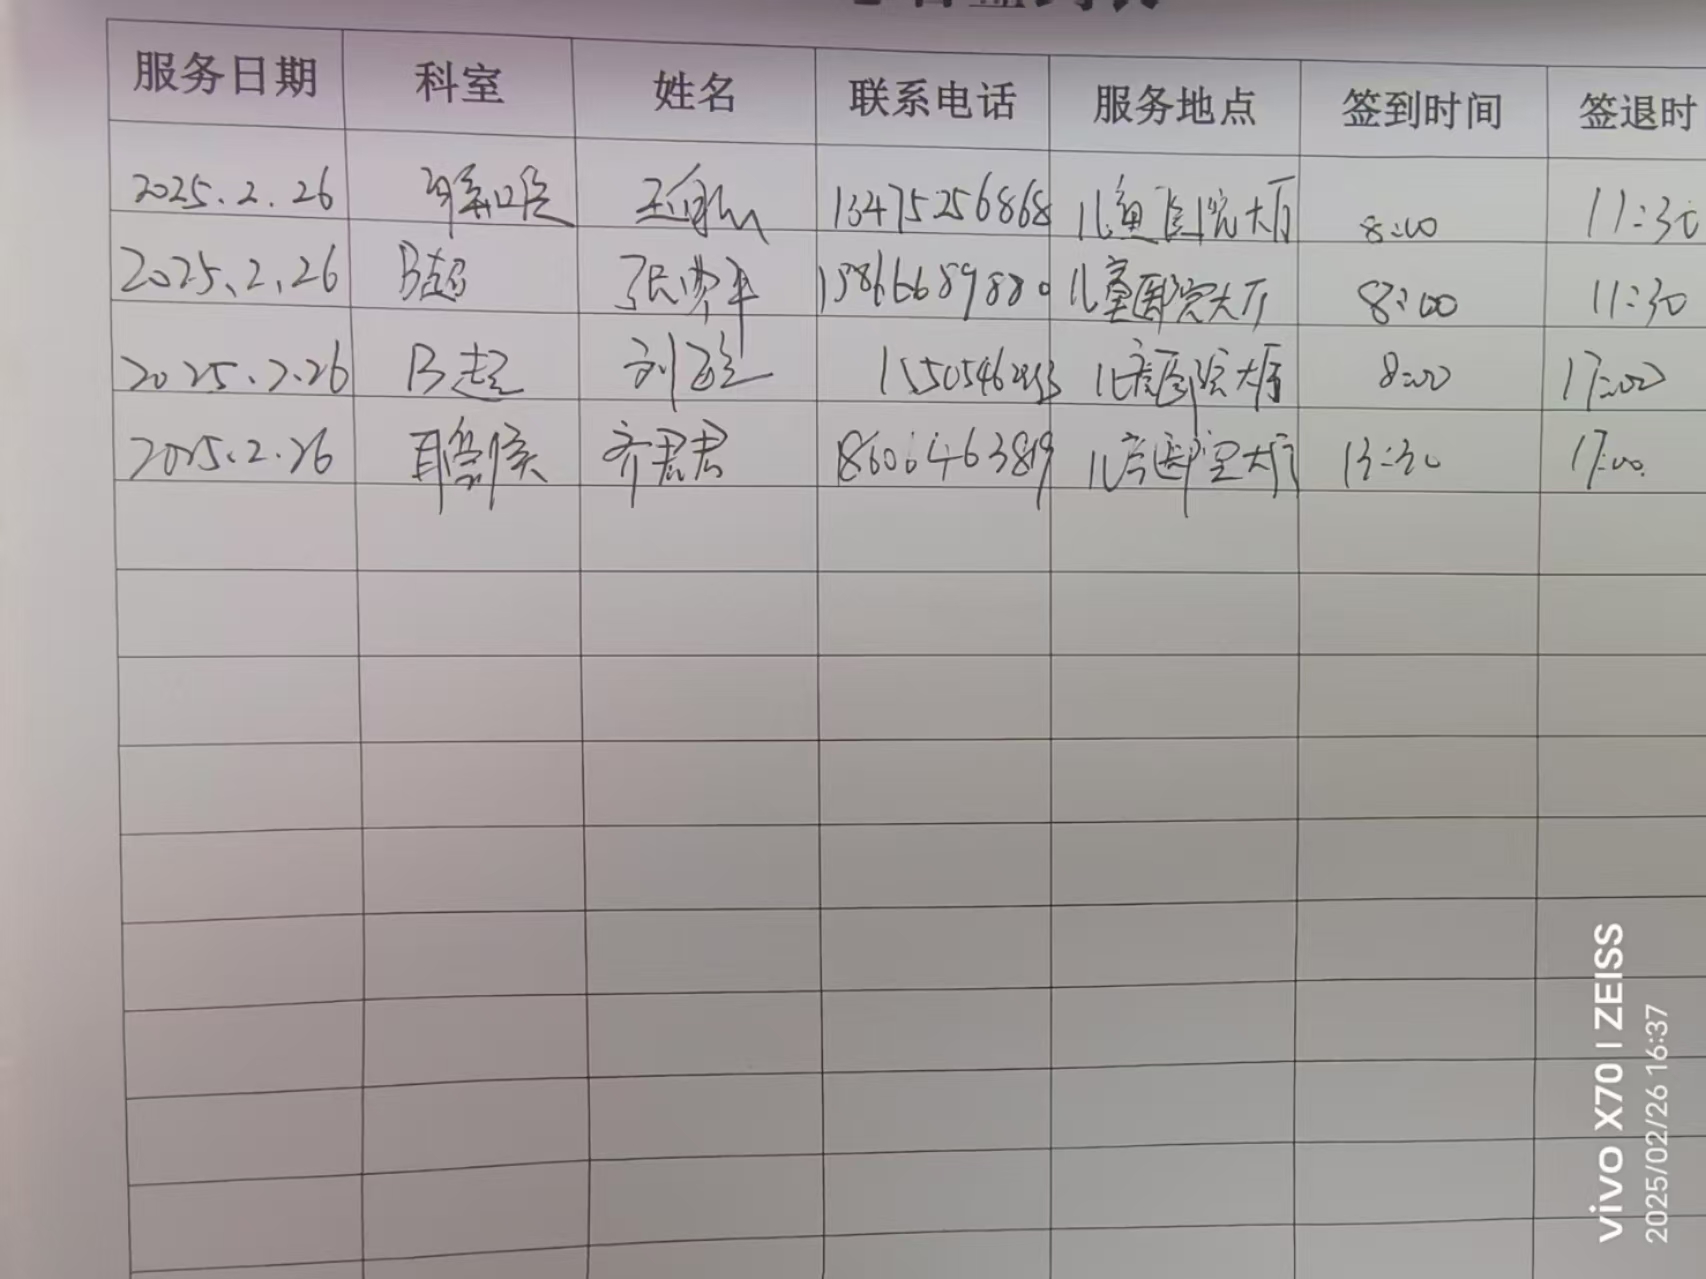 服务日期 科室 姓名 联系电话 服务地点 签到时间 签退时
2025.2.26 13475256868 儿童医院大厅 8:00 11:30
2025.2.26 B超 张 15866689880 儿童医院大厅 8:00 11:30
2025.2.26 B超 刘 儿童医院大厅 8:00 17:00
2025.2.26 耳鼻喉 齐君君 18606463819 儿童医院大厅 13:30 17:00
vivo X70 | ZEISS
2025/02/26 16:37